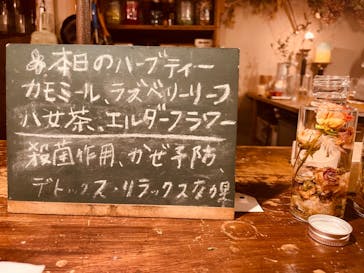 本日のハーブティー
カモミール、ラズベリーリーフ
八女茶、エルダーフラワー
殺菌作用、かぜ予防、
デトックス・リラックス効果